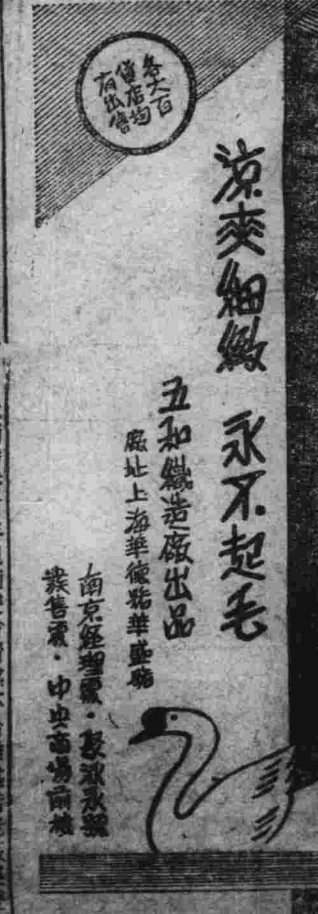 各大百
貨店均
有出售
涼爽細緻 永不起毛
五和織造廠出品
廠址上海華德路華盛路
南京經理處・
發售處・中央商場前樓